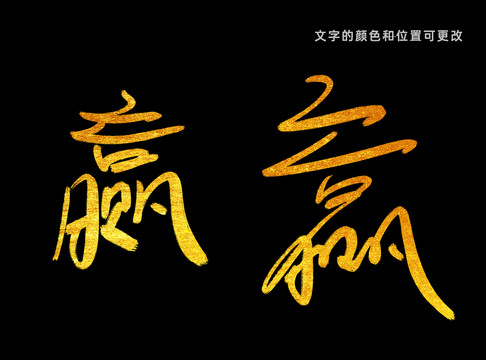 文字的颜色和位置可更改
赢 赢